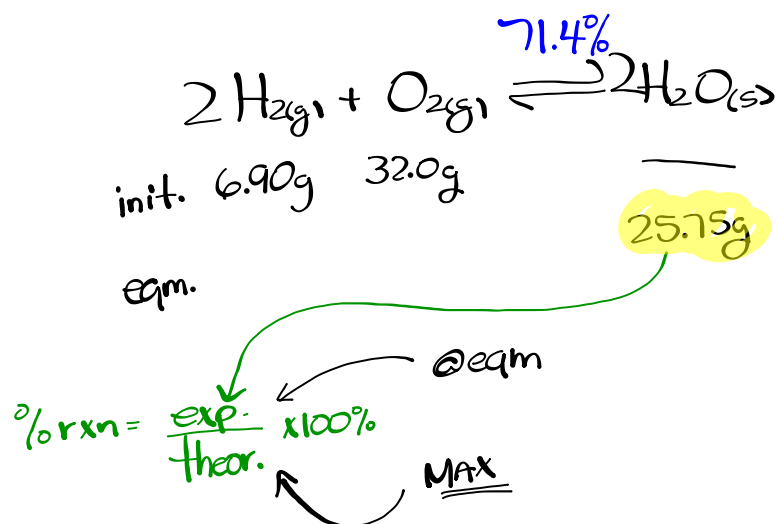 71.4%
2 H₂(g) + O₂(g) ⇌ 2H₂O(s)
init. 6.90g 32.0g —
25.75g
eqm.
@eqm
%rxn = exp. / theor. x100%
MAX